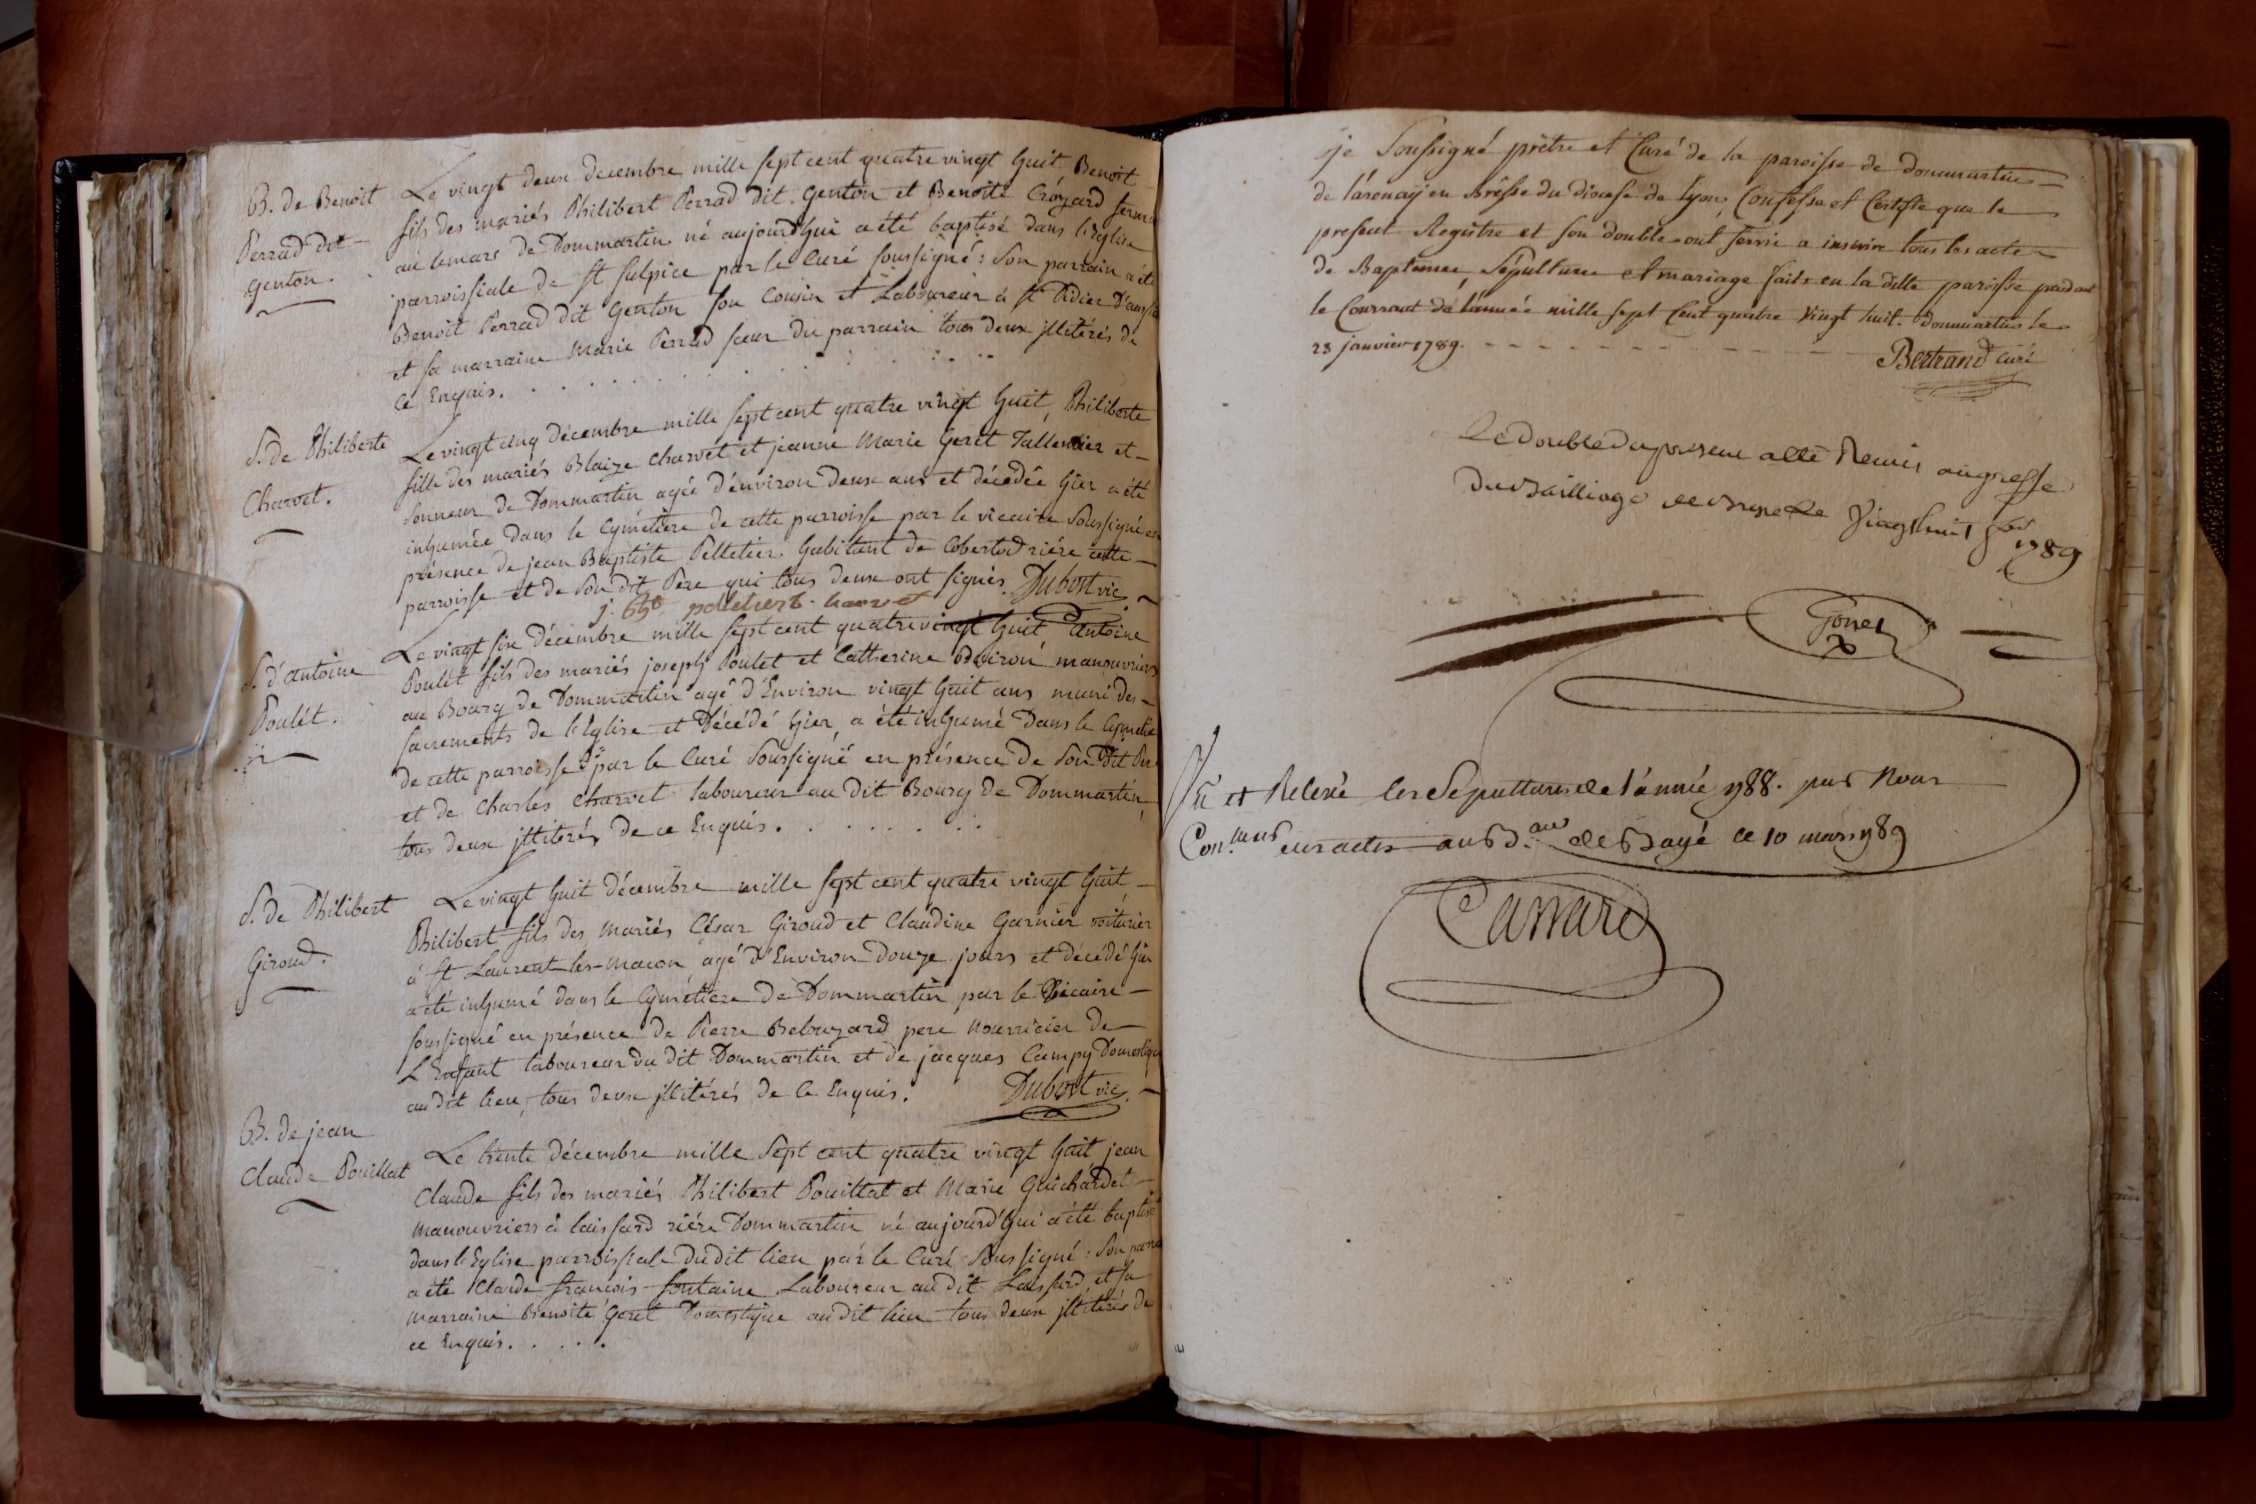 B. de Benoit
Perrad dit
genton.
Le vingt deux decembre mille sept cent quatre vingt huit, Benoit
fils des mariés Philibert Perrad dit genton et Benoite Croyard
au lemars de Dommartin né aujourd'hui a été baptisé dans l'Eglise
parroissiale de St Sulpice par le Curé soussigné : Son parrain a été
Benoit Perrad dit genton son Cousin et Laboureur à St Didier
et sa marraine Marie Perrad sœur du parrain tous deux jllitérés de
ce Enquis.
S. de Philiberte
Charvet.
Le vingt cinq décembre mille sept cent quatre vingt huit, Philiberte
fille des mariés Blaize Charvet et jeanne Marie geret et
Sonneur de Dommartin agée d'environ deux ans et décédée hier a été
inhumée dans le Cymetière de cette parroisse par le vicaire soussigné en
présence de jean Baptiste Pelletier habitant de rière cette
parroisse et de Son dit Père qui tous deux ont signés. Dubost vic
j. bte pelletier b. harvet
S. d'antoine
Poulet.
Le vingt six décembre mille sept cent quatre vingt huit antoine
Poulet fils des mariés joseph Poulet et Catherine manouvriers
au Bourg de Dommartin agé d'Environ vingt huit ans muni des
sacrements de l'Eglise et Décédé hier, a été inhumé Dans le
de cette parroisse par le Curé soussigné en présence de Son Dit
et de Charles Charvet laboureur au dit Bourg de Dommartin
tous deux jllitérés de ce Enquis.
S. de Philibert
Giroud.
Le vingt huit décembre mille sept cent quatre vingt huit
Philibert fils des mariés César Giroud et Claudine Garnier voiturier
à St Laurent les-macon agé d'Environ Douze jours et décédé hier
a été inhumé dans le Cymetiere de Dommartin par le Vicaire
soussigné en présence de Pierre Belouzard pere nourricier de
L'Enfant laboureur du dit Dommartin et de jacques Campy
au dit lieu, tous deux jllitérés de Ce Enquis. Dubost vic.
B. de jean
Claude Pouillat
Le trente décembre mille Sept cent quatre vingt huit jean
Claude fils des mariés Philibert Pouillat et Marie Guichardet
manouvriers à laissard rière Dommartin né aujourd'hui a été baptisé
dans l'Eglise parroissiale du dit lieu par le Curé Soussigné : Son
a été Claude françois fontaine Laboureur au dit Laissard et sa
marraine Benoite Geret Domestique au dit lieu tous deux jllitérés de
ce Enquis.
je Soussigné prêtre et Curé de la paroisse de dommartin
de larenay en Bresse du diocese de lyon, Confesse et Certifie que le
present Registre et son double ont servis a inscrire tous les actes
de Baptêmes, Sépulture et mariage faits en la ditte paroisse pendant
le Courrant de l'année mille sept Cent quatre vingt huit. Dommartin le
23 janvier 1789.
Bertrand Curé
Le double du present a été Remis au greffe
du Bailliage de Bresse Le Vingt huit
1789
Gonet
Vu et Relevé les Sepultures de l'année 1788. par Nous
des actes au de Bagé ce 10 mars 1789